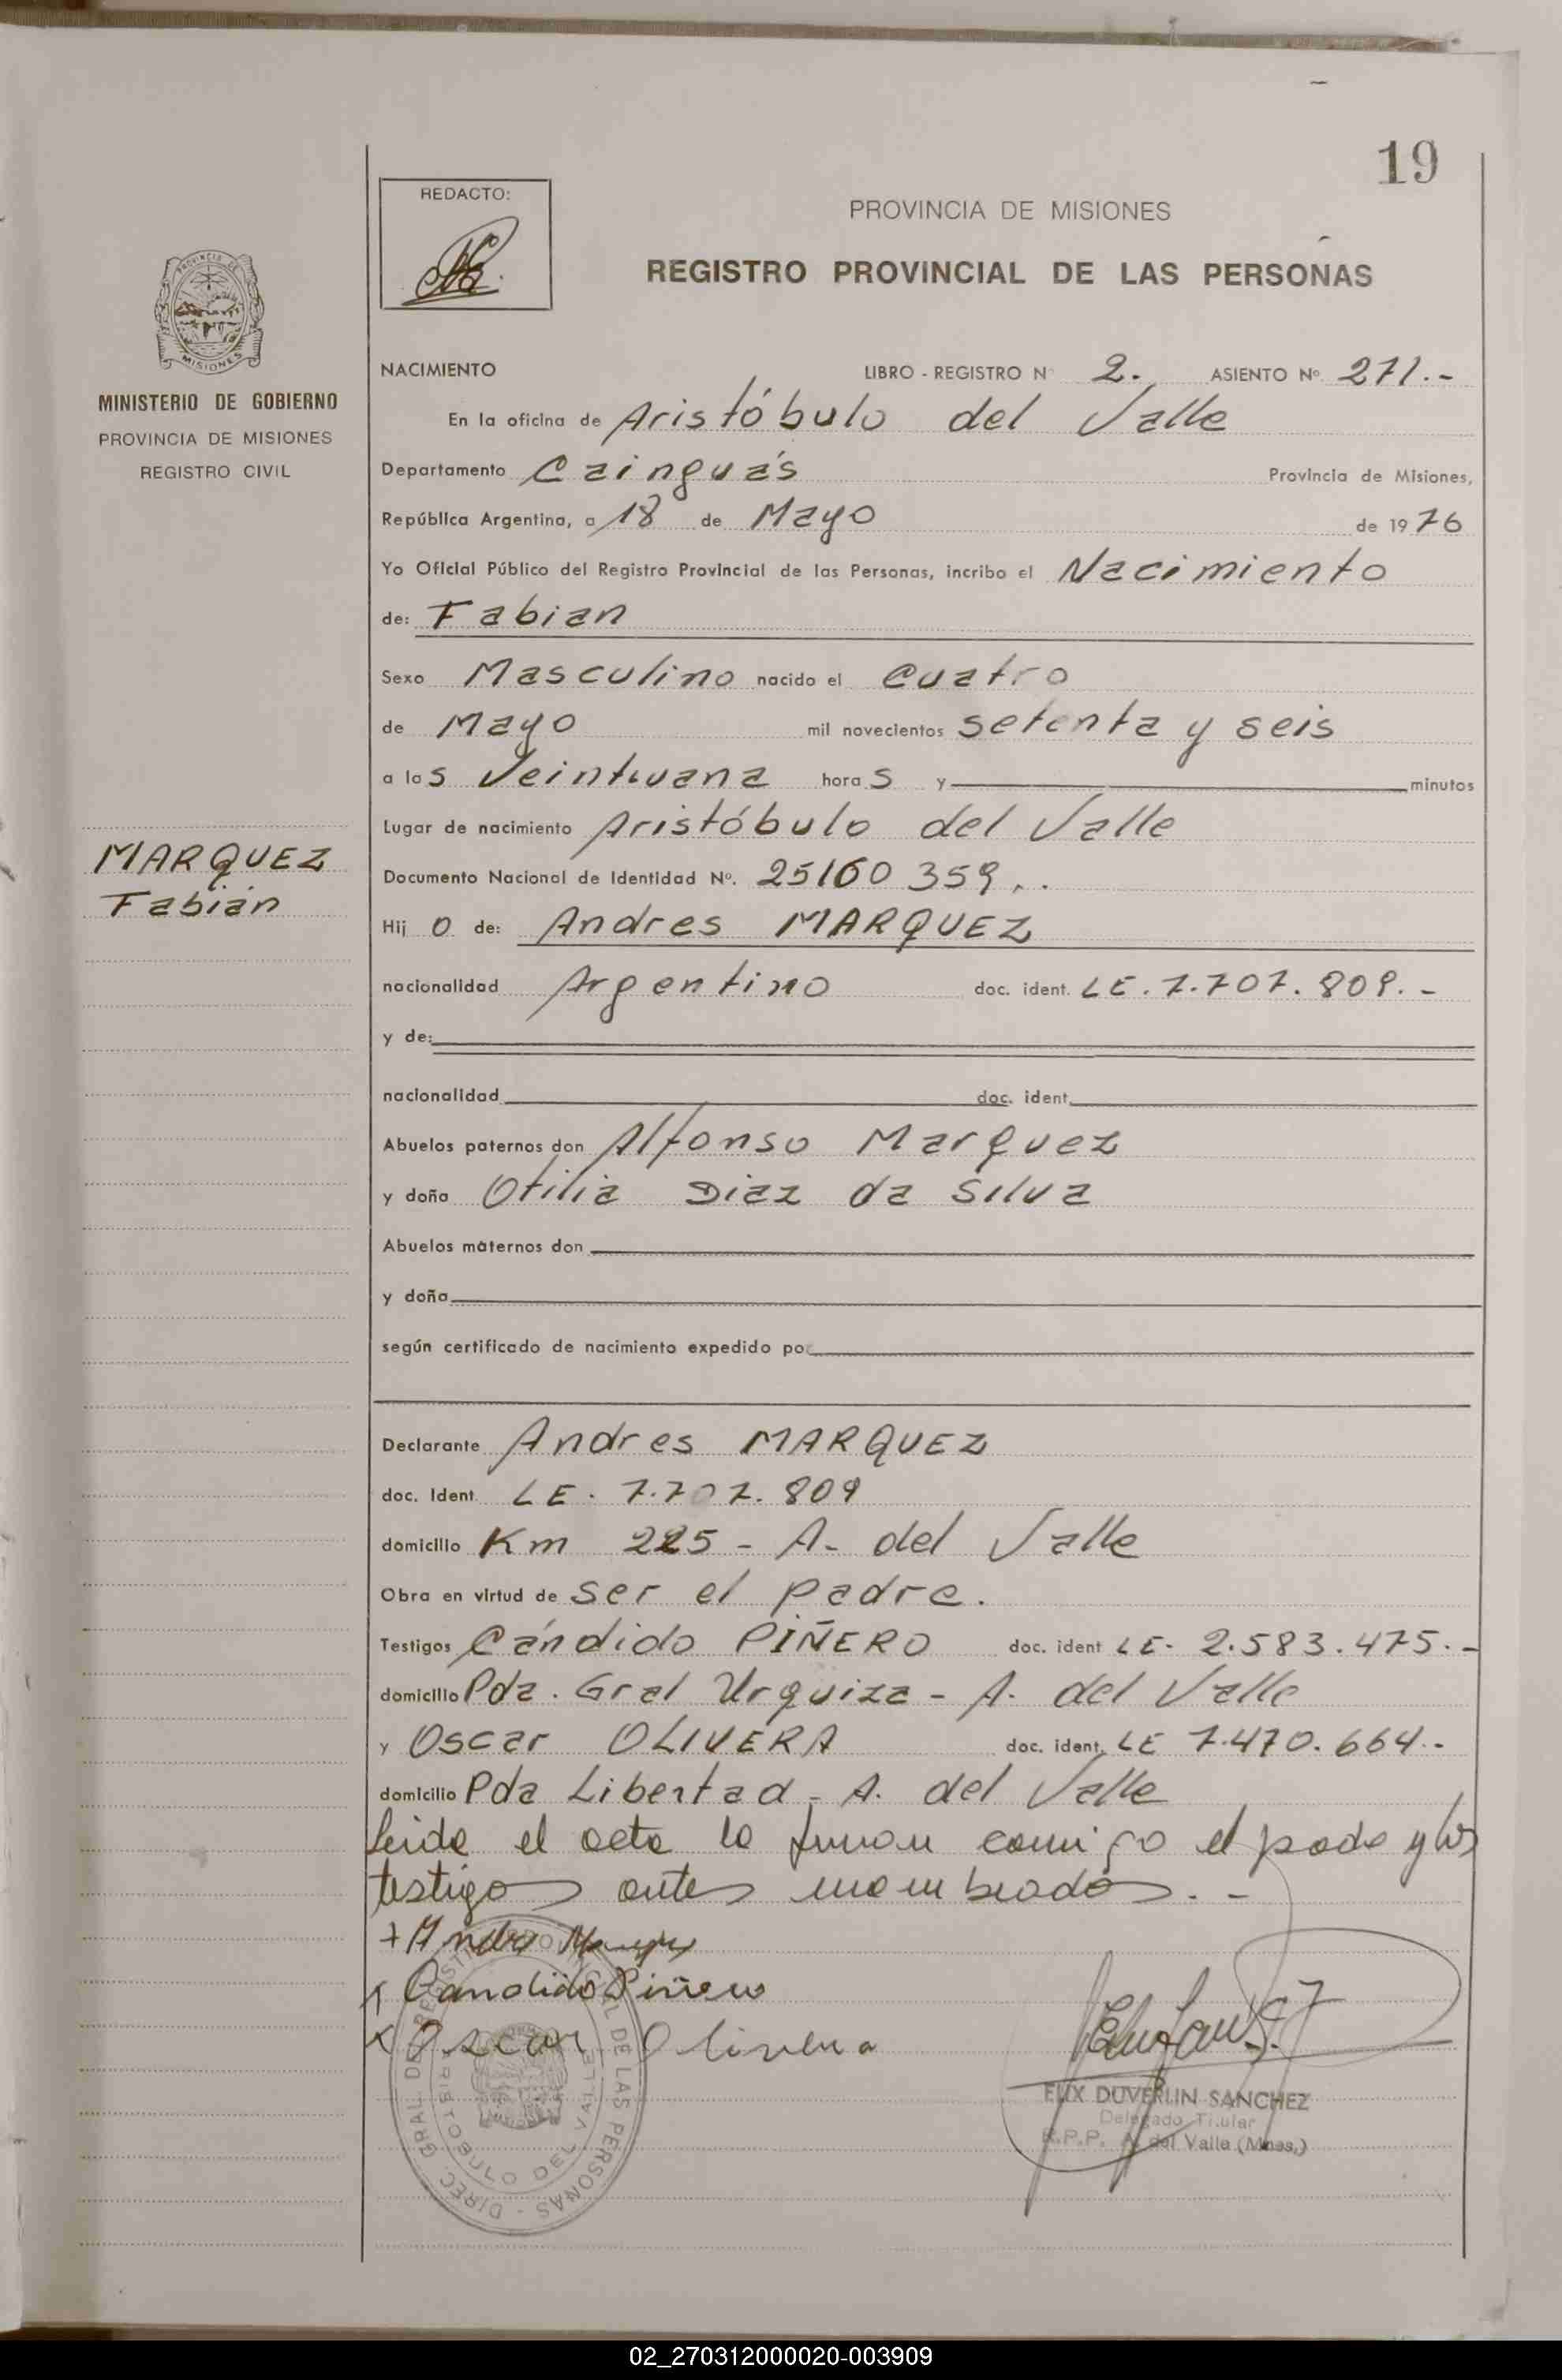 19
REDACTO:
PROVINCIA DE MISIONES
REGISTRO PROVINCIAL DE LAS PERSONAS
PROVINCIA DE
MISIONES
MINISTERIO DE GOBIERNO
PROVINCIA DE MISIONES
REGISTRO CIVIL
MARQUEZ
Fabián
NACIMIENTO LIBRO - REGISTRO Nº 2. ASIENTO Nº 271.-
En la oficina de Aristóbulo del Valle
Departamento Cainguás Provincia de Misiones,
República Argentina, a 18 de Mayo de 1976
Yo Oficial Público del Registro Provincial de las Personas, incribo el Nacimiento
de: Fabian
Sexo Masculino nacido el cuatro
de Mayo mil novecientos setenta y seis
a las Veintiuana horas y minutos
Lugar de nacimiento Aristóbulo del Valle
Documento Nacional de Identidad Nº. 25160 359..
Hijo de: Andres MARQUEZ
nacionalidad Argentino doc. ident. LE. 7.707.809.-
y de:
nacionalidad doc. ident.
Abuelos paternos don Alfonso Marquez
y doña Otilia Diaz da Silva
Abuelos maternos don
y doña
según certificado de nacimiento expedido por
Declarante Andres MARQUEZ
doc. Ident. LE. 7.707.809
domicilio Km 225 - A. del Valle
Obra en virtud de ser el padre.
Testigos Cándido PIÑERO doc. ident LE- 2.583.475.-
domicilio Pda. Gral Urquiza - A. del Valle
y Oscar OLIVERA doc. ident. LE 7.470.664.-
domicilio Pda Libertad - A. del Valle
Leida el acta la firman comigo el padre y los
testigos antes mombrados.-
Candido Piñero
Oscar Olivera
DIREC. GRAL. DEL REGISTRO PROVINCIAL DE LAS PERSONAS
ARISTOBULO DEL VALLE
ELIX DUVERLIN SANCHEZ
Delegado Titular
R.P.P. A. del Valle (Mnes.)
02_270312000020-003909